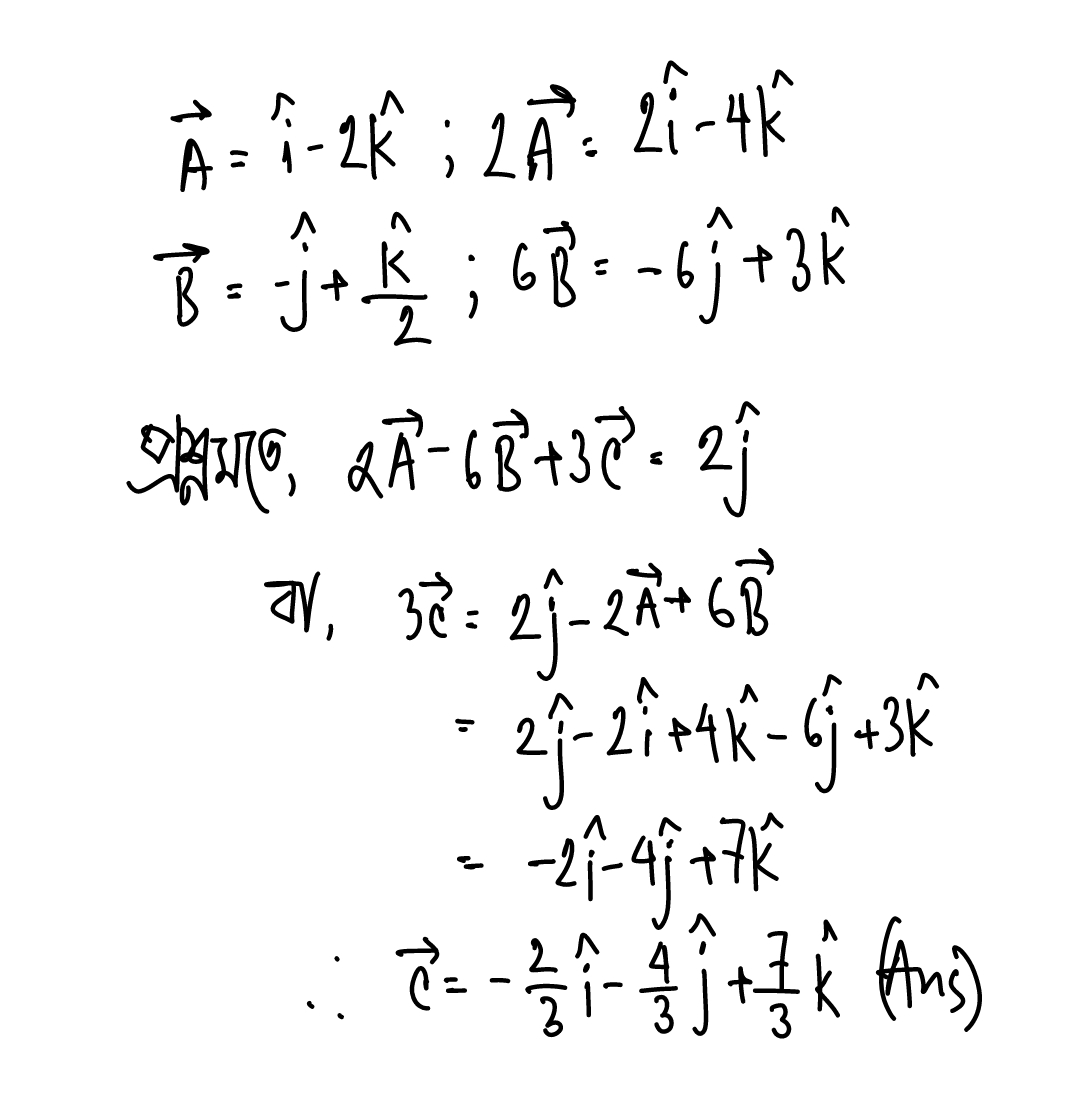 A⃗ = î - 2k̂ ; 2A⃗ = 2î - 4k̂
B⃗ = -ĵ + k̂/2 ; 6B⃗ = -6ĵ + 3k̂
প্রশ্নমতে, 2A⃗ - 6B⃗ + 3C⃗ = 2ĵ
বা, 3C⃗ = 2ĵ - 2A⃗ + 6B⃗
= 2ĵ - 2î + 4k̂ - 6ĵ + 3k̂
= -2î - 4ĵ + 7k̂
∴ C⃗ = -2/3 î - 4/3 ĵ + 7/3 k̂ (Ans)